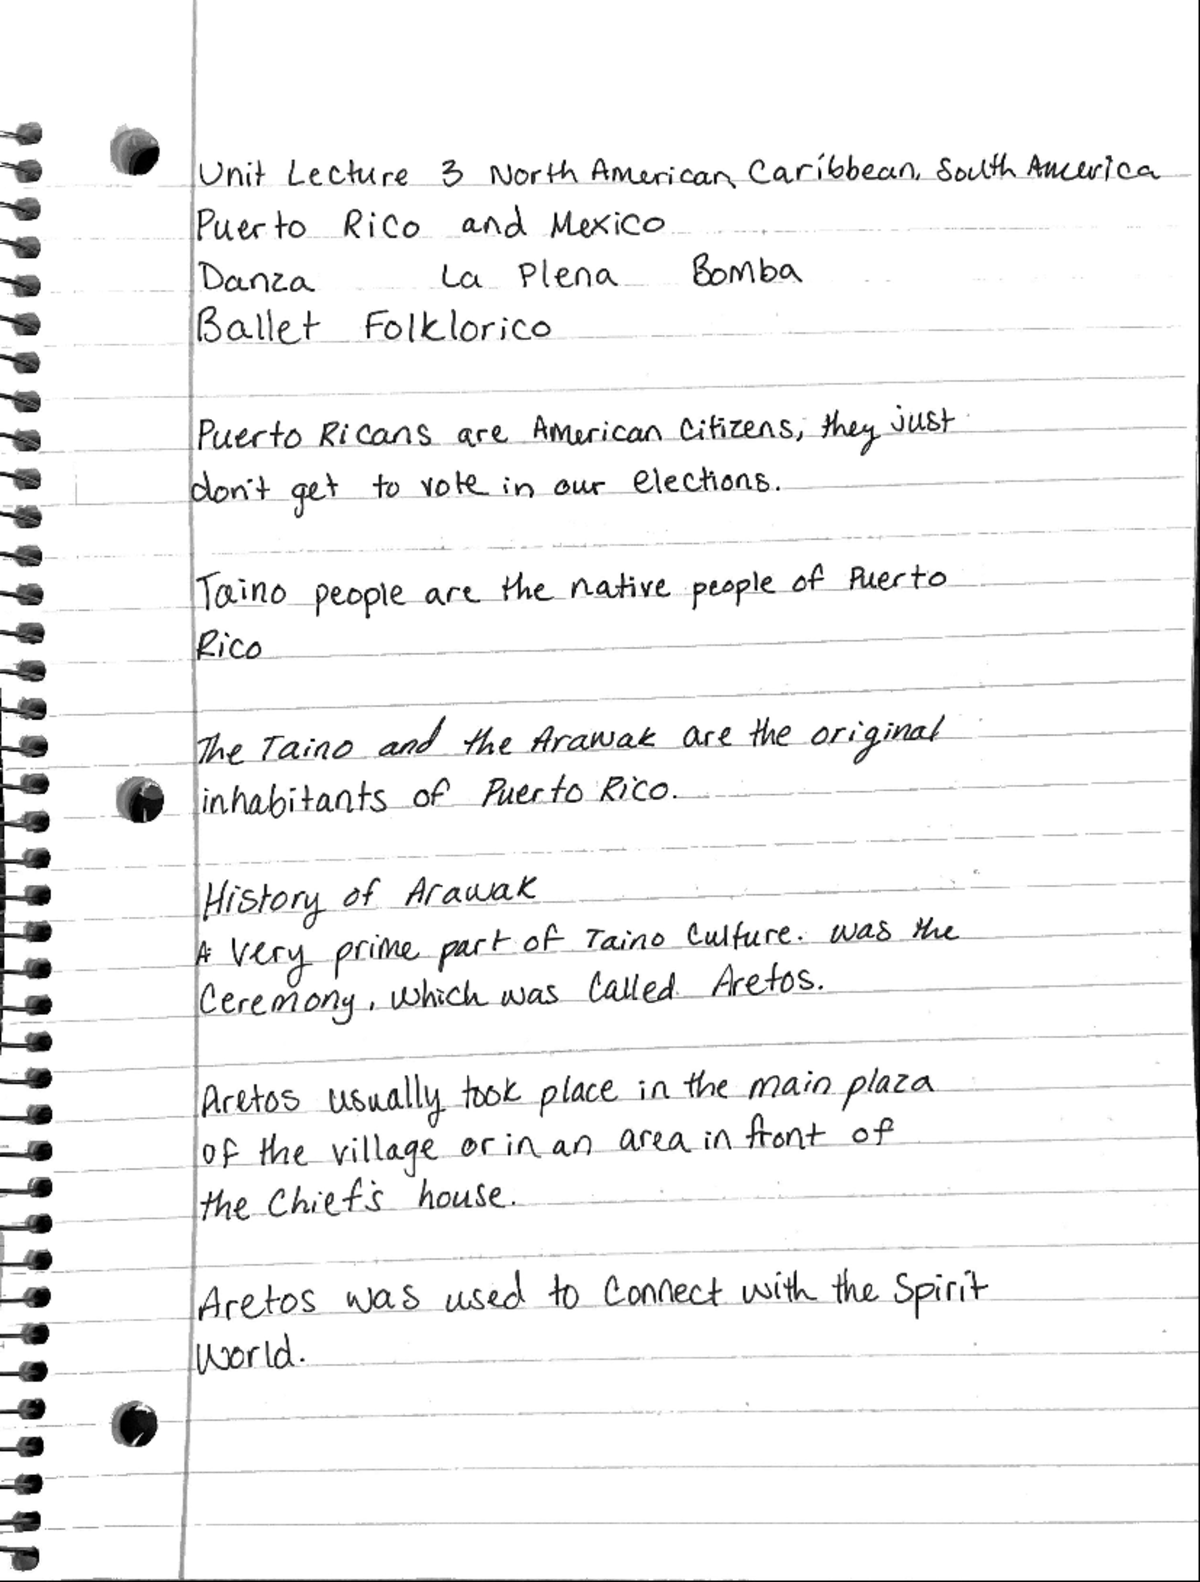 Unit Lecture 3 North American, Caribbean, South America
Puerto Rico and Mexico
Danza La Plena Bomba
Ballet Folklorico
Puerto Ricans are American Citizens, they just
don't get to vote in our elections.
Taino people are the native people of Puerto
Rico
The Taino and the Arawak are the original
inhabitants of Puerto Rico.
History of Arawak
A very prime part of Taino Culture. was the
Ceremony, which was Called Aretos.
Aretos usually took place in the main plaza
of the village or in an area in front of
the Chief's house.
Aretos was used to Connect with the Spirit
World.